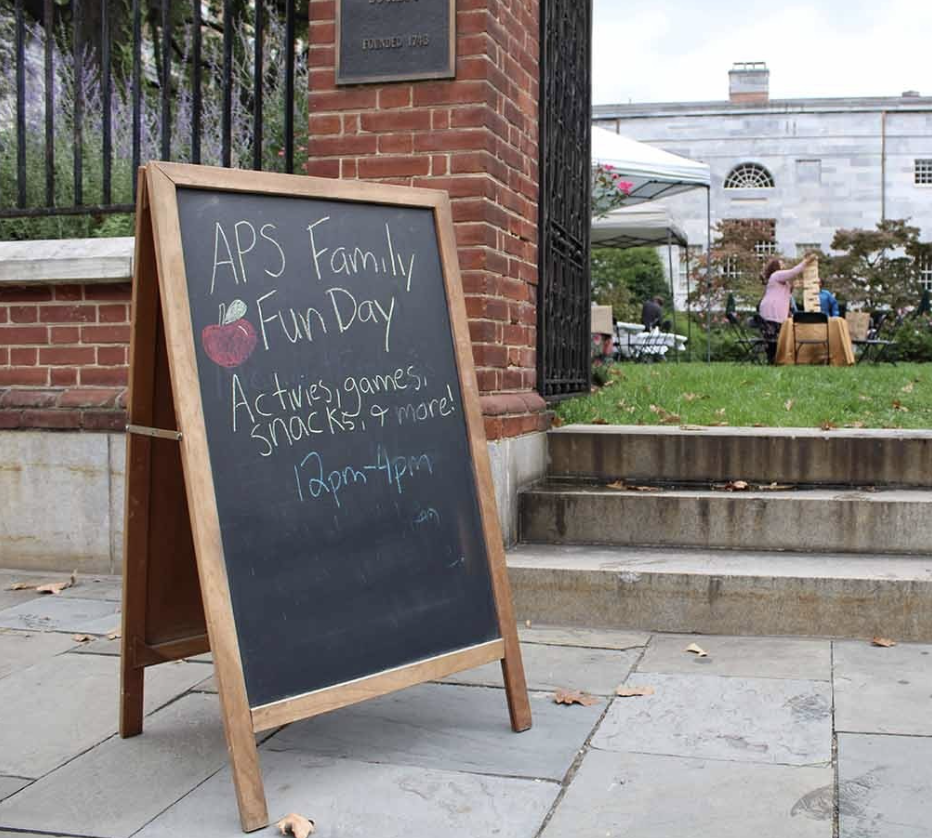 FOUNDED 1743
APS Family
Fun Day
Activies, games,
snacks, & more!
12pm-4pm